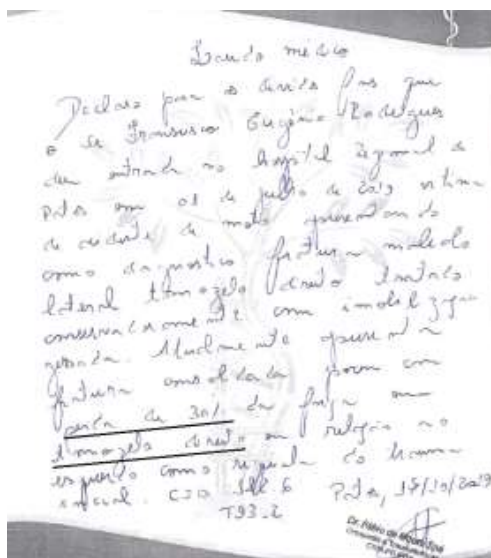 Laudo médico
Declaro para os devidos fins que
o Sr Francisco Eugênio Rodrigues
deu entrada no hospital Regional de
Patos em 01 de julho de 2019 vitima
de acidente de moto apresentando
como diagnostico fratura maleolo
lateral tornozelo direito tratado
conservadoramente com imobilização
gessada. Atualmente apresenta
fratura consolidada porem com
perda de 30% da força em
tornozelo direito em relação ao
esquerdo como sequela do trauma
inicial. CID S82.6 Patos, 17/10/2019
T93.2